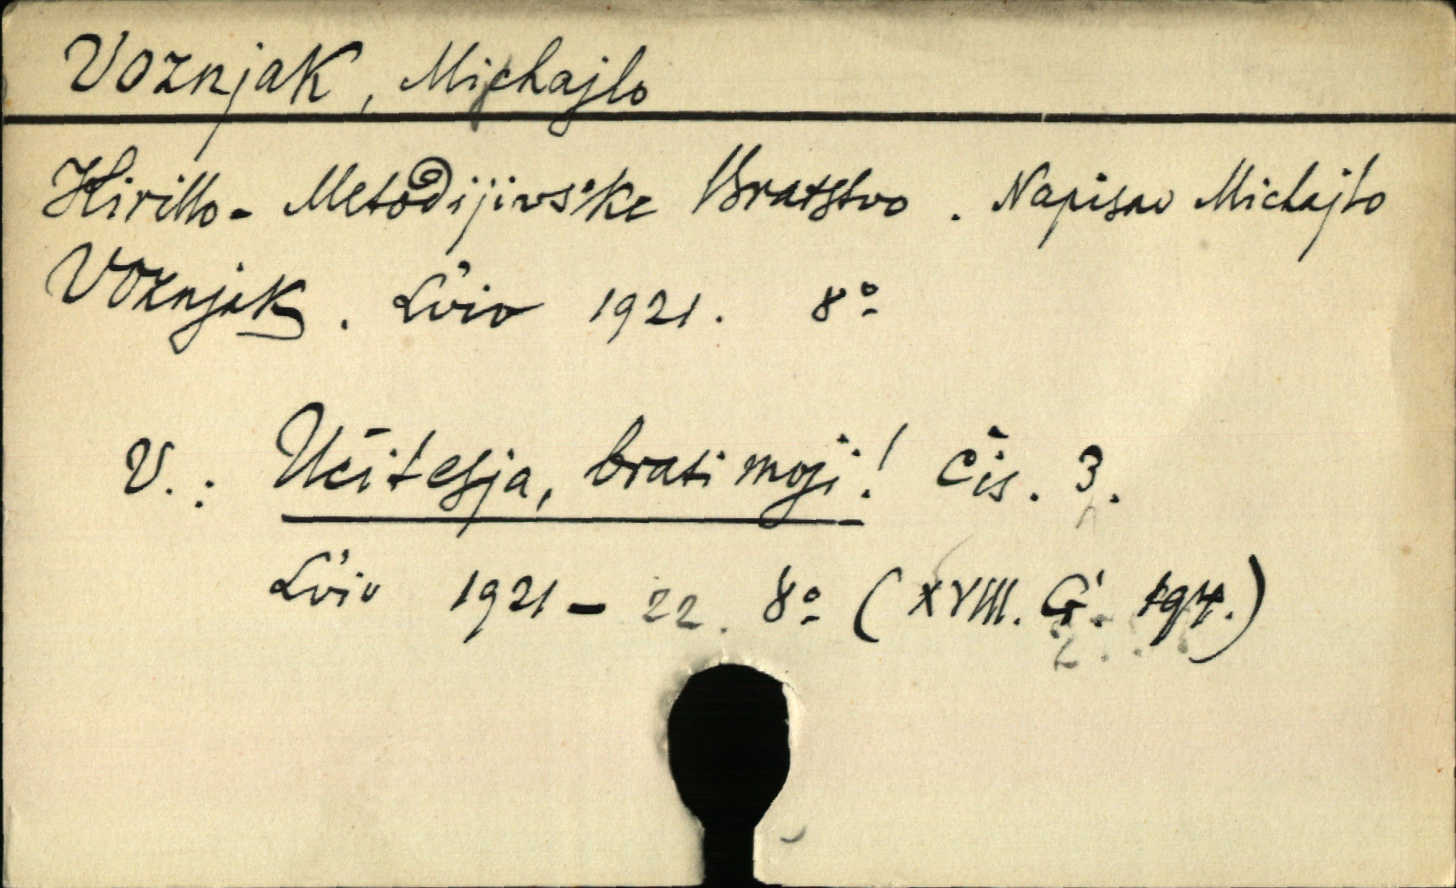 Voznjak, Michajlo
Kirillo-Metodijivs'ke Bratstvo. Napisav Michajlo
Voznjak. L'viv 1921. 8°
V.: Učitesja, brati moji! čis. 3.
L'viv 1921-22. 8° (XVIII. G. 197.)